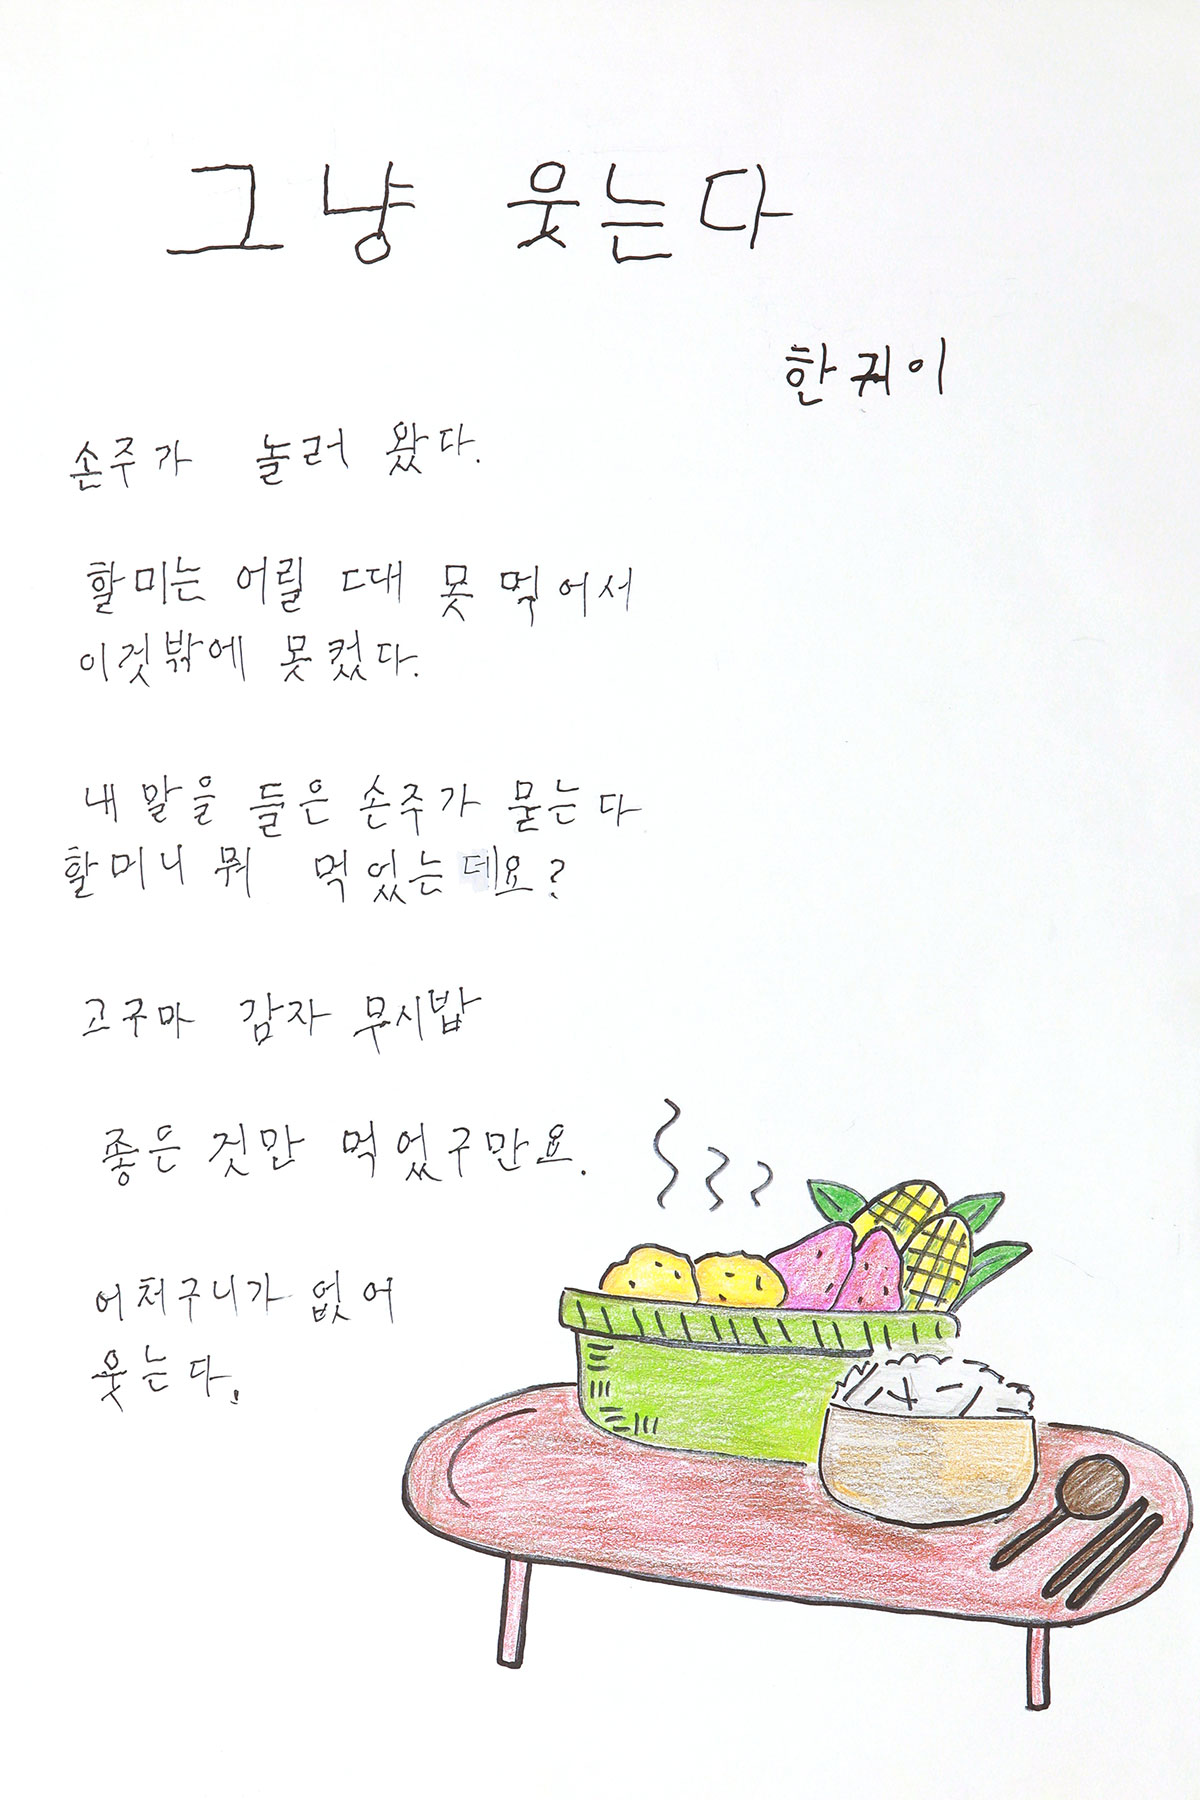 그냥 웃는다
한귀이
손주가 놀러 왔다.
할미는 어릴 때 못 먹어서
이것밖에 못컸다.
내 말을 들은 손주가 묻는다
할머니 뭐 먹었는데요?
고구마 감자 무시밥
좋은 것만 먹었구만요.
어처구니가 없어
웃는다.